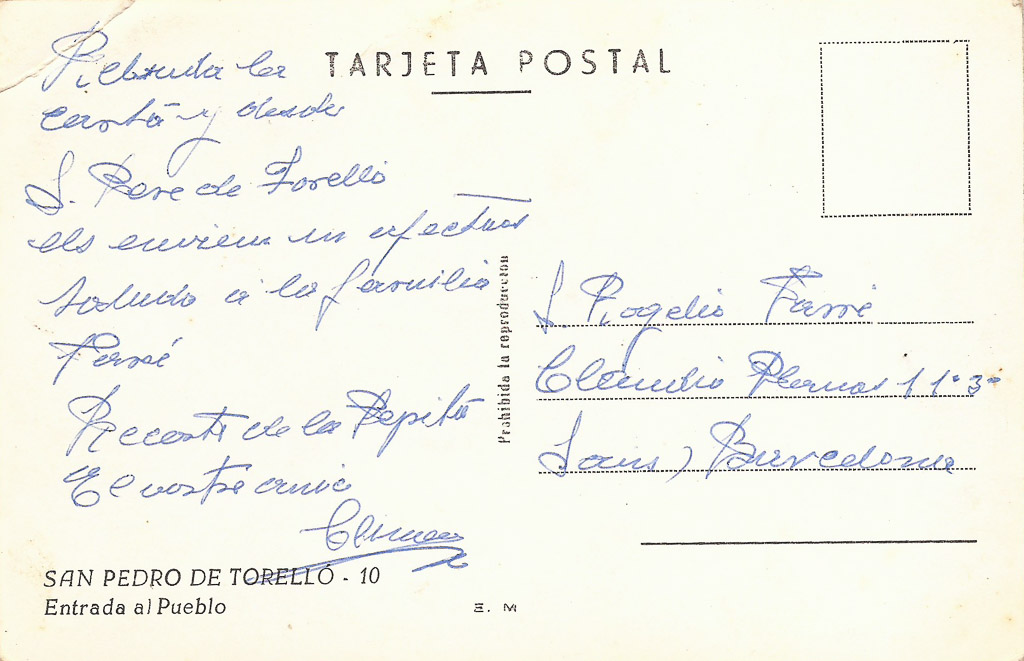 TARJETA POSTAL
Rebuda la
carta y desde
S. Pere de Torelló
els enviem un afectuos
saludo a la familia
Farré
Records de la Pepita
El vostre amic
Climen
SAN PEDRO DE TORELLÓ - 10
Entrada al Pueblo
E. M
Prohibida la reproducción
S. Rogelio Farré
Claudio Planas 1 1º 3ª
Sans, Barcelona